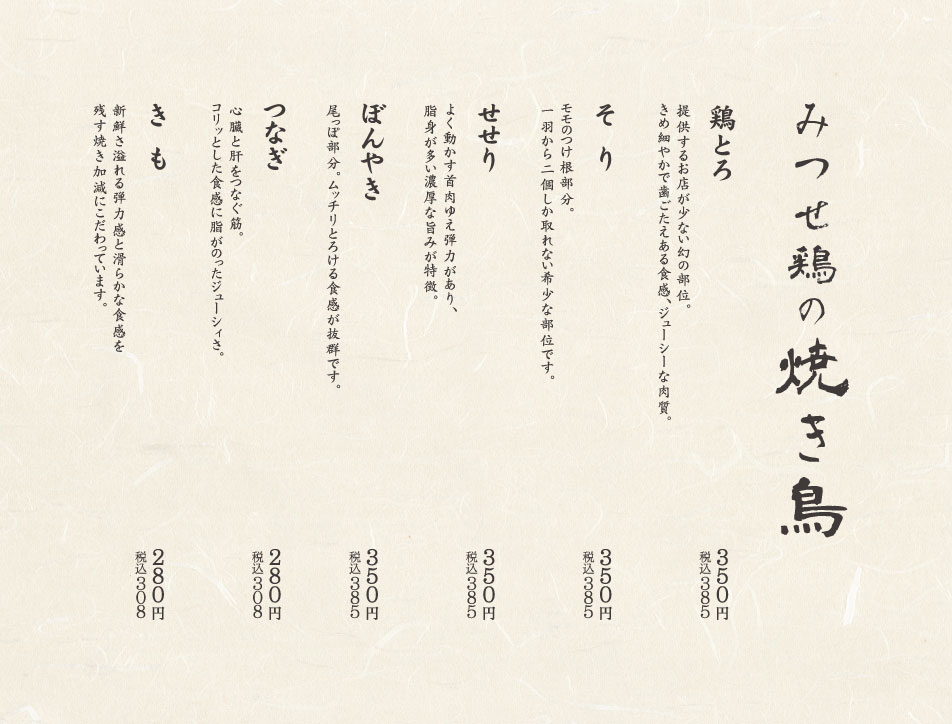 みつせ鶏の焼き鳥
鶏とろ
提供するお店が少ない幻の部位。
きめ細やかで歯ごたえある食感、ジューシーな肉質。
350円
税込385
そり
モモのつけ根部分。
一羽から二個しか取れない希少な部位です。
350円
税込385
せせり
よく動かす首肉ゆえ弾力があり、
脂身が多い濃厚な旨みが特徴。
350円
税込385
ぼんやき
尾っぽ部分。ムッチリとろける食感が抜群です。
350円
税込385
つなぎ
心臓と肝をつなぐ筋。
コリッとした食感に脂がのったジューシィさ。
280円
税込308
きも
新鮮さ溢れる弾力感と滑らかな食感を
残す焼き加減にこだわっています。
280円
税込308